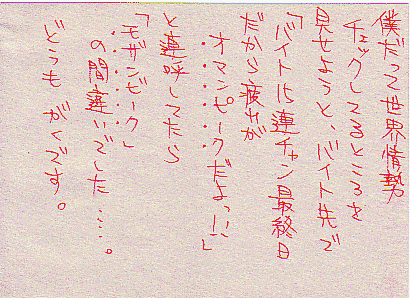 僕だって世界情勢
チェックしてるところを
見せようと、バイト先で
「バイト15連チャン最終日
だから疲れが
オマンピークだよっ!!」
と連呼してたら
「モザンビーク」
の間違いでした…。
どうもがくです。